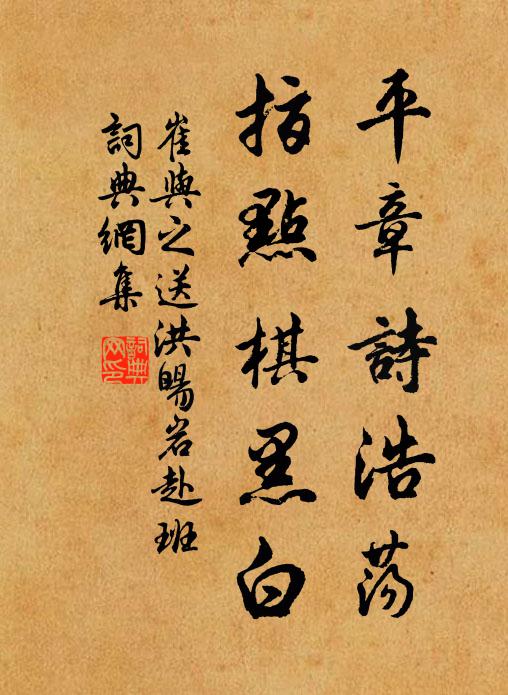 平章詩浩蕩
指點棋黑白
崔與之送洪暘岩赴班
詞典網集
詞典網印